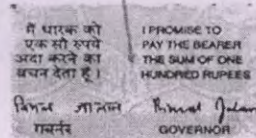 मैं धारक को
एक सौ रुपये
अदा करने का
वचन देता हूँ ।
I PROMISE TO
PAY THE BEARER
THE SUM OF ONE
HUNDRED RUPEES
बिमल जालान
Bimal Jalan
गवर्नर
GOVERNOR